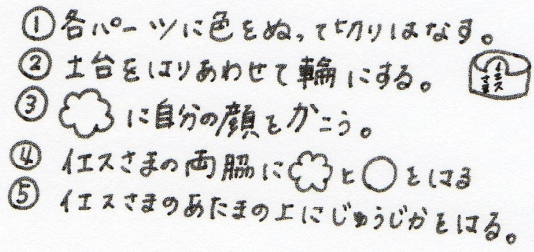 ①各パーツに色をぬって切りはなす。
②土台をはりあわせて輪にする。
イエスさま
③に自分の顔をかこう。
④イエスさまの両脇にと○をはる
⑤イエスさまのあたまの上にじゅうじかをはる。